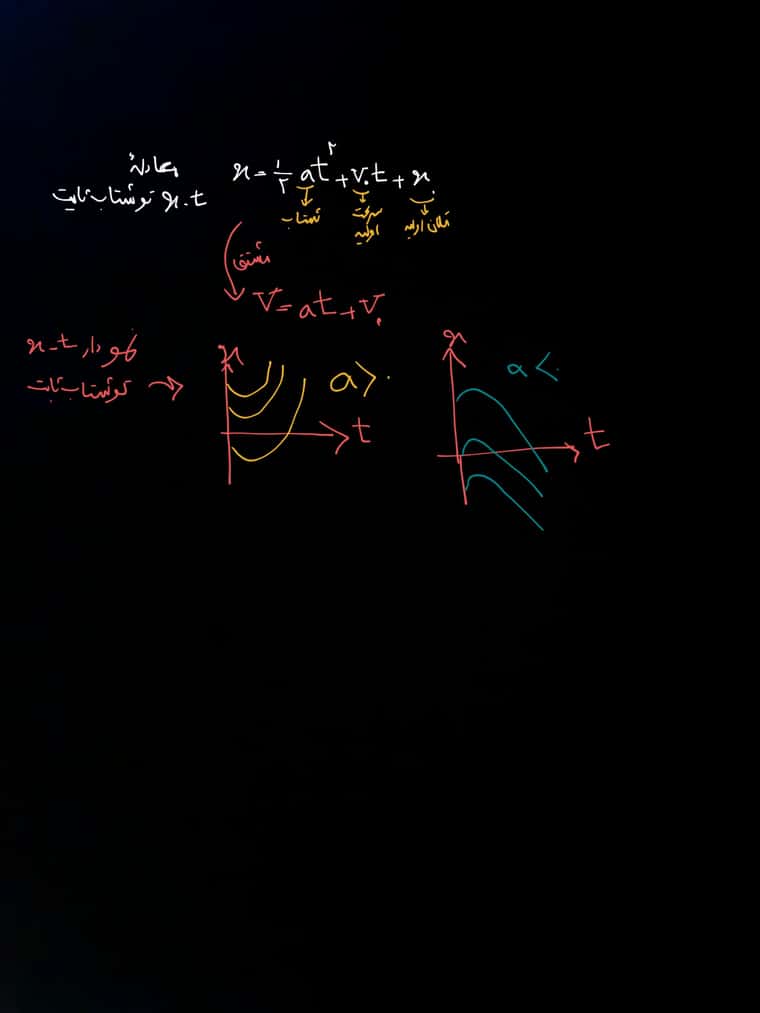 معادلهٔ
x-t تو شتاب ثابت
x = ۱/۲ at^۲ + v۰t + x۰
شتاب
سرعت اولیه
مکان اولیه
مشتق
V = at + V۰
نمودار x-t
تو شتاب ثابت
x
a > ۰
t
x
a < ۰
t